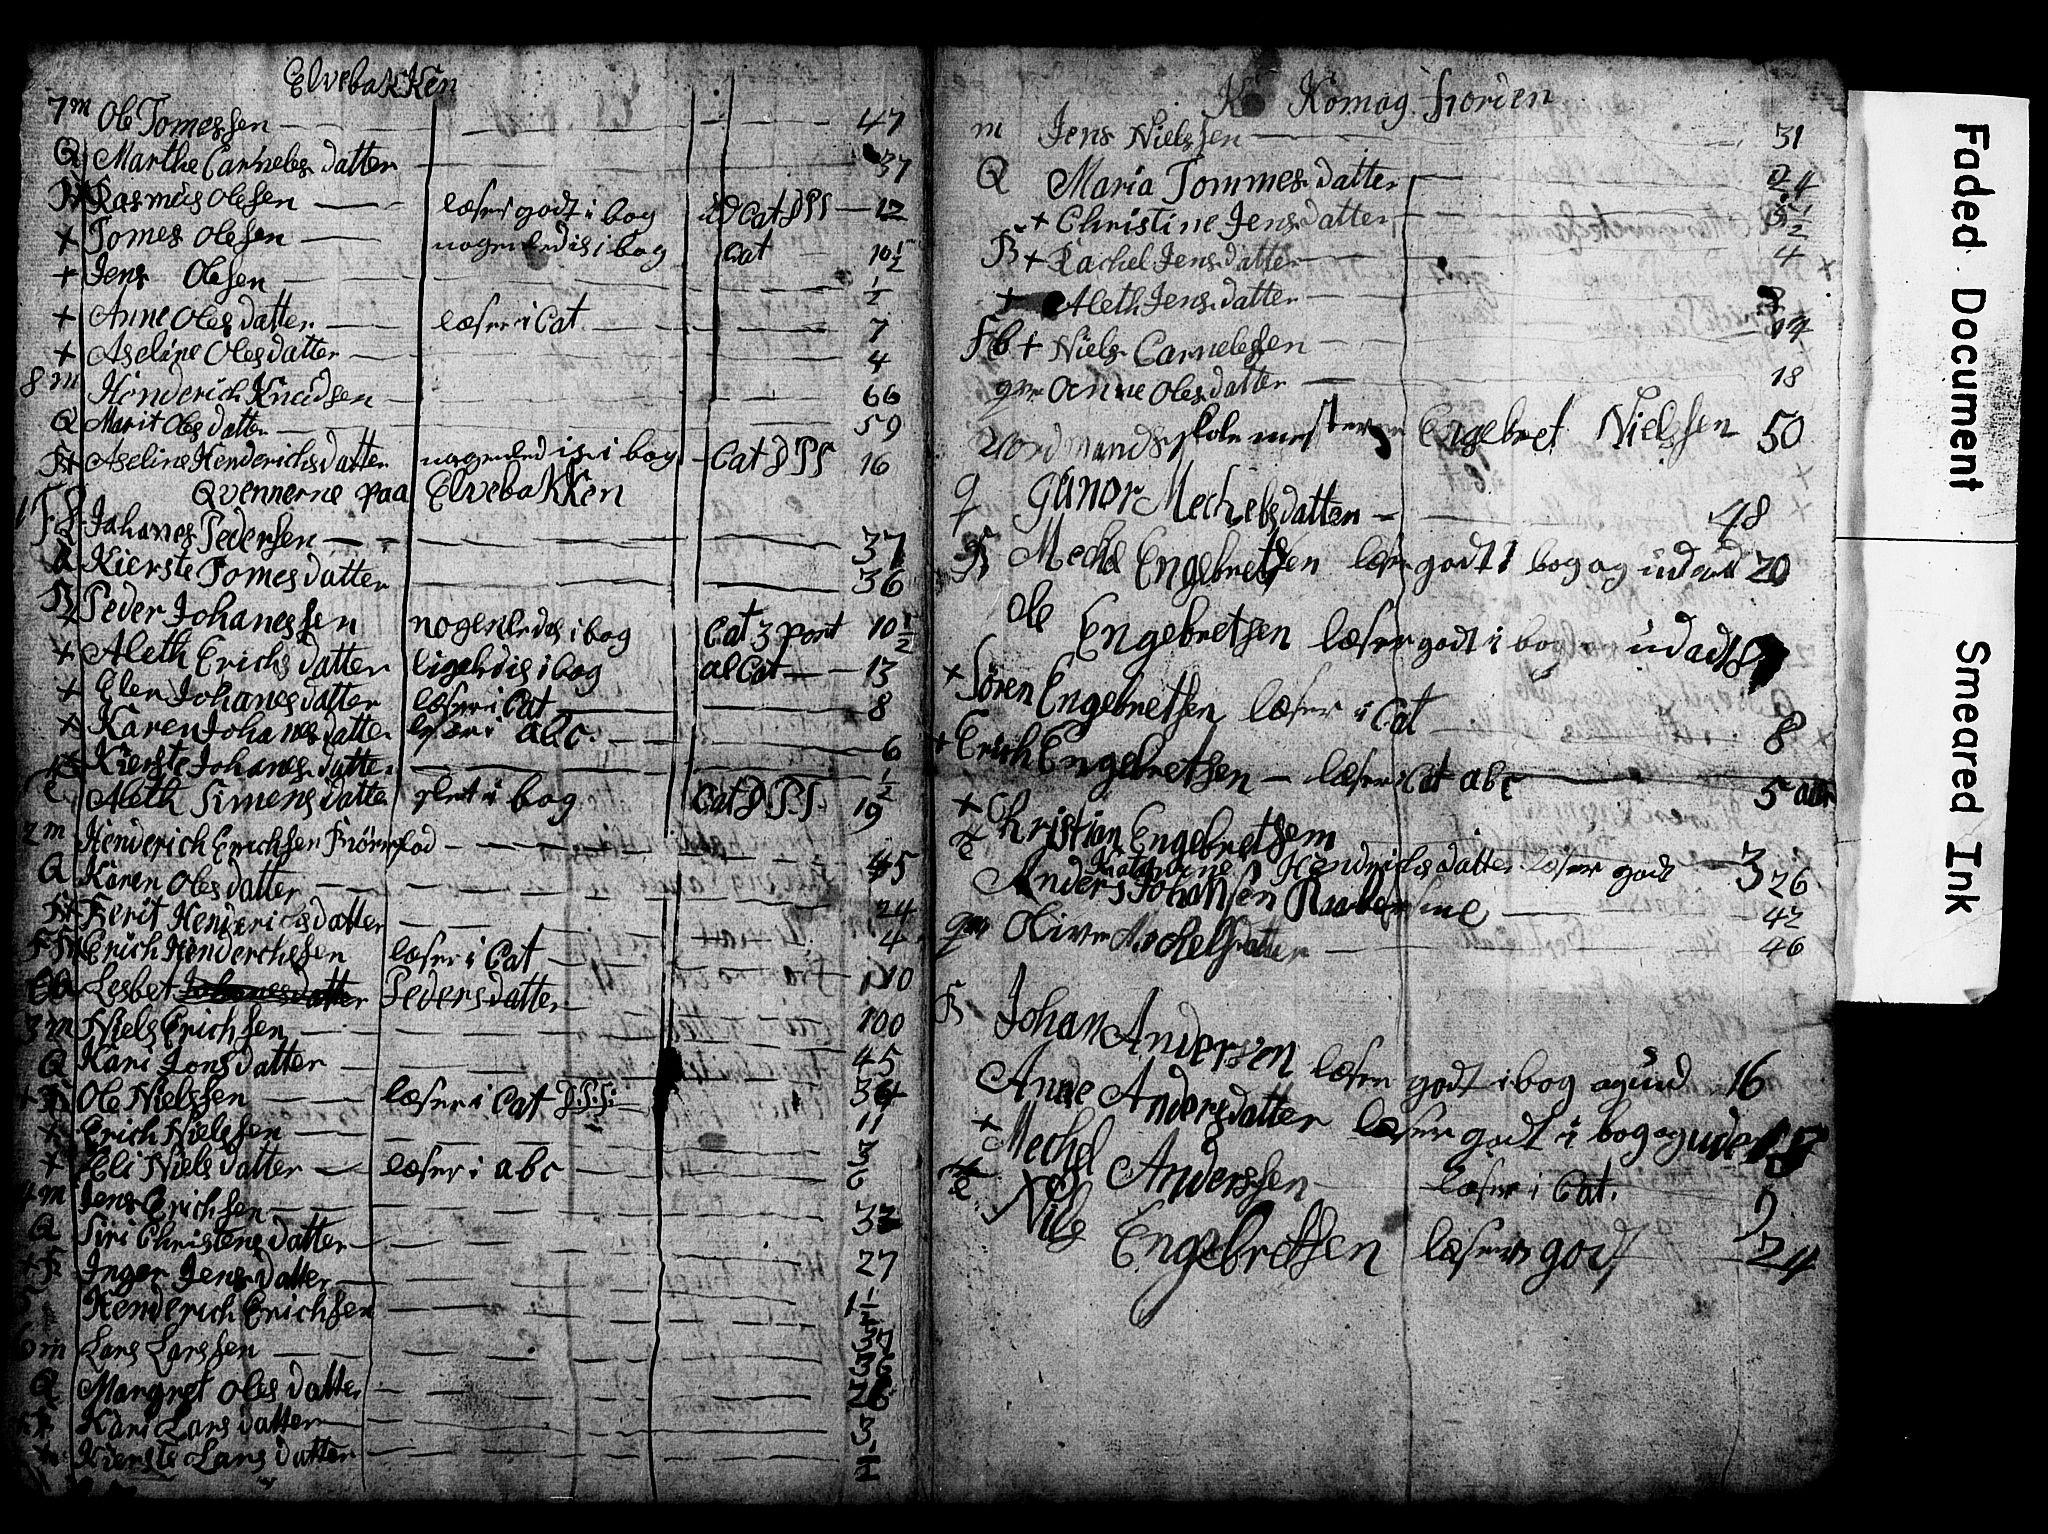 Elvebakken
7 m Ole Tomessen 47
Q Marthe Carnelesdatter 37
Rasmus Olesen læser godt i bog Cat 12
+ Tomes Olesen nogenledis i bog Cat 10 1/2
+ Jens Olesen 1/2
+ Anne Olesdatter læser i Cat 7
+ Aseline Olesdatter 4
8 m Henderich Knudsen 66
Q Marit Olesdatter 59
Aseline Henderichsdatter nogenledis i bog Cat 16
Qvennerne paa Elvebakken
1 Johanes Pedersen 37
Q Kierste Tomesdatter 36
Peder Johanessen nogenledes i bog Cat 3 part 10 1/2
+ Aleth Erichsdatter ligeledis i bog al Cat 13
+ Elen Johanesdatter læser i Cat 8
+ Karen Johanesdatter læser i abc 6
Kierste Johanesdatter 1/2
Aleth Simensdatter slet i bog Cat 19
2 m Henderich Erichsen 45
Q Karen Olesdatter 24
Berit Henderichsdatter 4
Erich Henderichsen læser i Cat 10
Lesbet Johanesdatter Pedersdatter 100
3 m Niels Erichsen 45
Q Kari Jonsdatter 34
+ Ole Nielssen læser i Cat 11
+ Erich Nielssen 3
+ Eli Nielsdatter læser i abc 6
4 m Jens Erichsen
Q Siri Christensdatter 27
+ Inger Jensdatter 1 1/2
5 Henderich Erichsen 37
6 m Lars Larssen 36
Q Margret Olesdatter 26
Kari Larsdatter 3
+ Kierste Larsdatter 1/2
Komag fiorden
m Jens Nielssen 31
Q Maria Tommesdatter 24
+ Christine Jensdatter
+ Rachel Jensdatter 4
+ Aleth Jensdatter
Fb + Niels Carnelessen
Anne Olesdatter 18
Nordmands skolemester Engebret Nielssen 50
q Gunor Mechelsdatter 48
Mechel Engebretsen læser godt i bog og udad 20
Ole Engebretsen læser godt i bog udad
+ Søren Engebretsen læser i Cat 8
+ Erich Engebretsen læser i Cat abc 5
+ Christian Engebretsen 3
Katarine Hendrichsdatter læser godt 26
Anders Johansen 42
Olive Mechelsdatter 46
Johan Andersen læser godt i bog og ud 16
Anne Andersdatter læser godt i bog og uden
+ Mechel Anderssen læser i Cat. 9
Nils Engebretsen læser godt 24
Faded Document
Smeared Ink